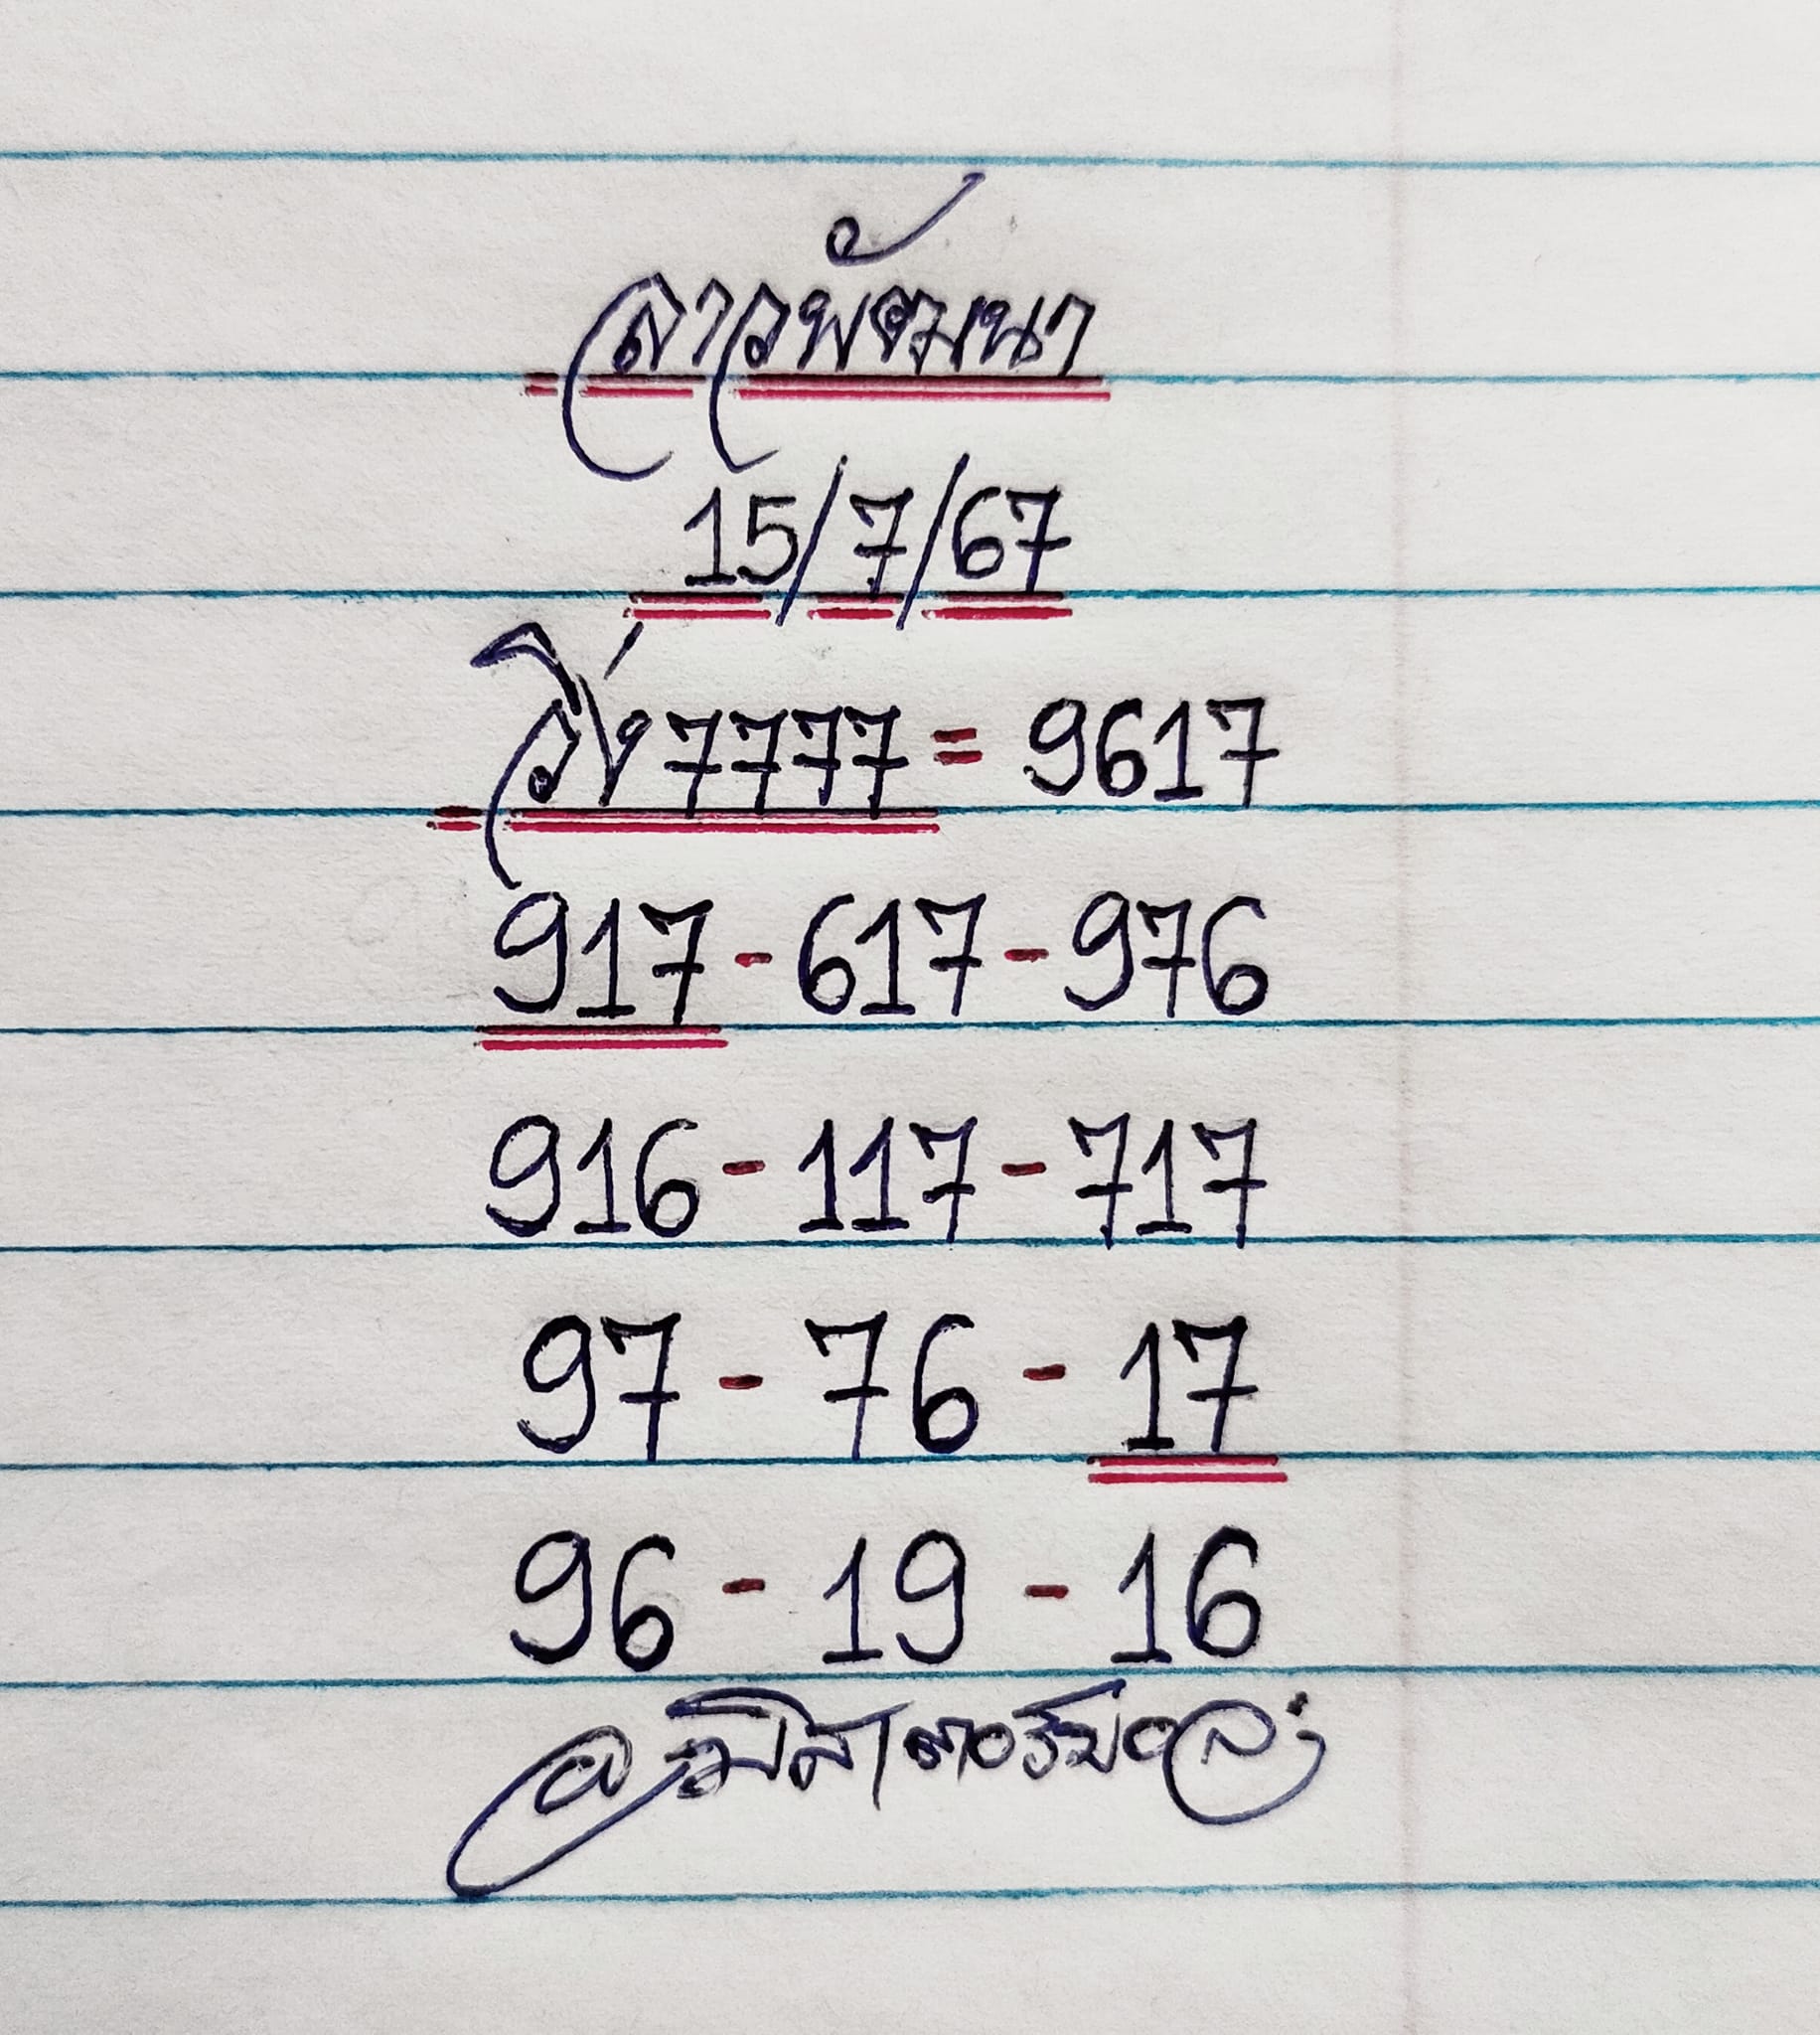 ลาวพัฒนา
15/7/67
วิ่ง7777=9617
917-617-976
916-117-717
97-76-17
96-19-16